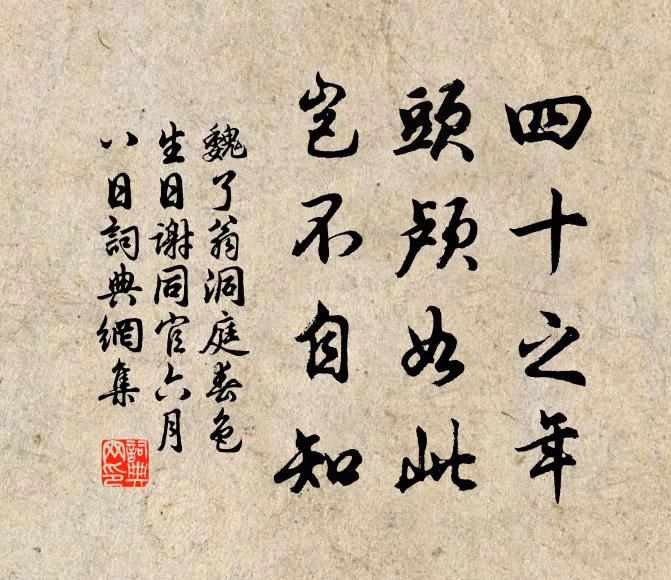 四十之年
頭顱如此
豈不自知
魏了翁洞庭春色
生日謝同官六月
八日詞典網集
詞典
网印